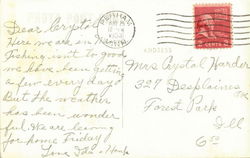 Dear Crystal
Here we are in
Fishing isn't to good
we have been getting
a few every day.
But the weather
has been wonder
ful. We are leaving
for home Friday
Love Ida + Hank
PERHAM
MINN.
ADDRESS
Mrs Crystal Harder
327 Desplaines
Forest Park
Ill